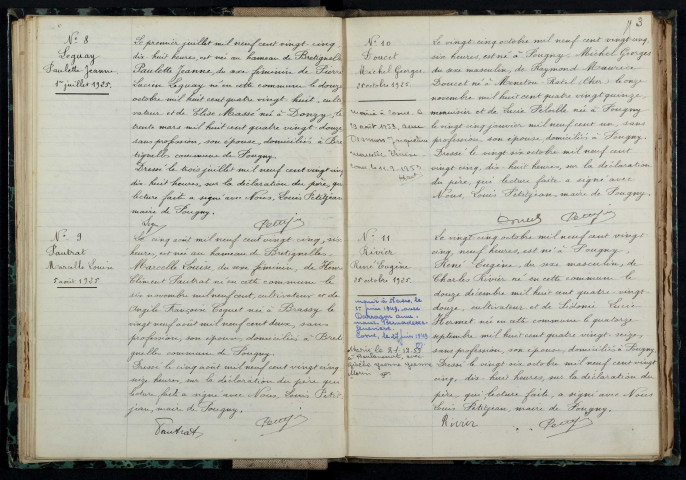 N° 8
Leguay
Paulette Jeanne
1er juillet 1925.
Le premier juillet mil neuf cent vingt-cinq
dix huit heures, est née au hameau de Bretignelles
Paulette Jeanne, du sexe féminin de Pierre
Lucien Leguay né en cette commune le douze
octobre mil huit cent quatre vingt-huit, culti-
vateur et de Elise Masse née à Donzy, le
trente mars mil huit cent quatre vingt-douze
sans profession, son épouse, domiciliés à Bre
tignelles commune de Pougny.
Dressé le trois juillet mil neuf cent vingt cinq
dix huit heures, sur la déclaration du père, qui
lecture faite a signé avec Nous, Louis Petitjean
maire de Pougny.
N° 9
Pautrat
Marcelle Louise
5 août 1925.
Le cinq août mil neuf cent vingt cinq, six
heures, est née au hameau de Bretignelles
Marcelle Louise, du sexe féminin, de Henri
Clément Pautrat né en cette commune le
six novembre mil neuf cent, cultivateur et de
Angèle Françoise Coquet née à Brassy le
vingt neuf août mil neuf cent deux, sans
profession, son épouse, domiciliés à Breti
gnelles commune de Pougny.
Dressé le cinq août mil neuf cent vingt cinq
seize heures, sur la déclaration du père qui
lecture faite, a signé avec Nous, Louis Petit
jean, maire de Pougny.
Pautrat
3
N° 10
Doucet
Michel Georges
25 octobre 1925.
Le vingt cinq octobre mil neuf cent vingt-cinq,
six heures, est né à Pougny, Michel Georges
du sexe masculin, de Raymond Maurice
Doucet né à Menetou Ratel (Cher) le onze
novembre mil huit cent quatre vingt quinze,
menuisier et de Lucie née à Pougny
le vingt janvier mil neuf cent un, sans
profession, son épouse, domiciliés à Pougny.
Dressé le vingt six octobre mil neuf cent
vingt-cinq, dix-huit heures, sur la déclaration
du père, qui lecture faite a signé avec
Nous, Louis Petitjean, maire de Pougny.
Doucet
N° 11
Rivier
René Eugène
25 octobre 1925.
Le vingt cinq octobre mil neuf cent vingt-
cinq, neuf heures, est né à Pougny,
René Eugène, du sexe masculin, de
Charles Rivier né en cette commune le
douze décembre mil huit cent quatre-vingt-
douze, cultivateur et de Lucie
née cette commune le quatorze
septembre mil huit cent quatre vingt-seize,
sans profession, son épouse, domiciliés à Pougny
Dressé le vingt six octobre mil neuf cent vingt
cinq, dix-huit heures, sur la déclaration du
père, qui lecture faite, a signé avec Nous
Louis Petitjean, maire de Pougny.
Rivier